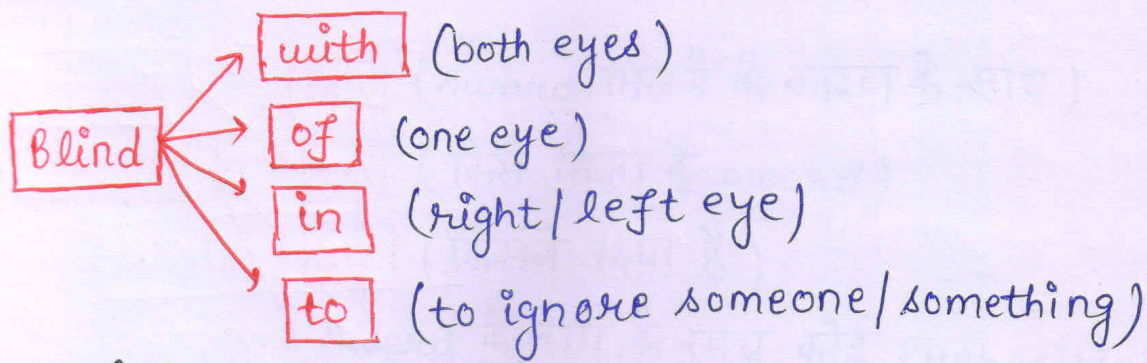 with (both eyes)
of (one eye)
Blind
in (right/left eye)
to (to ignore someone/something)